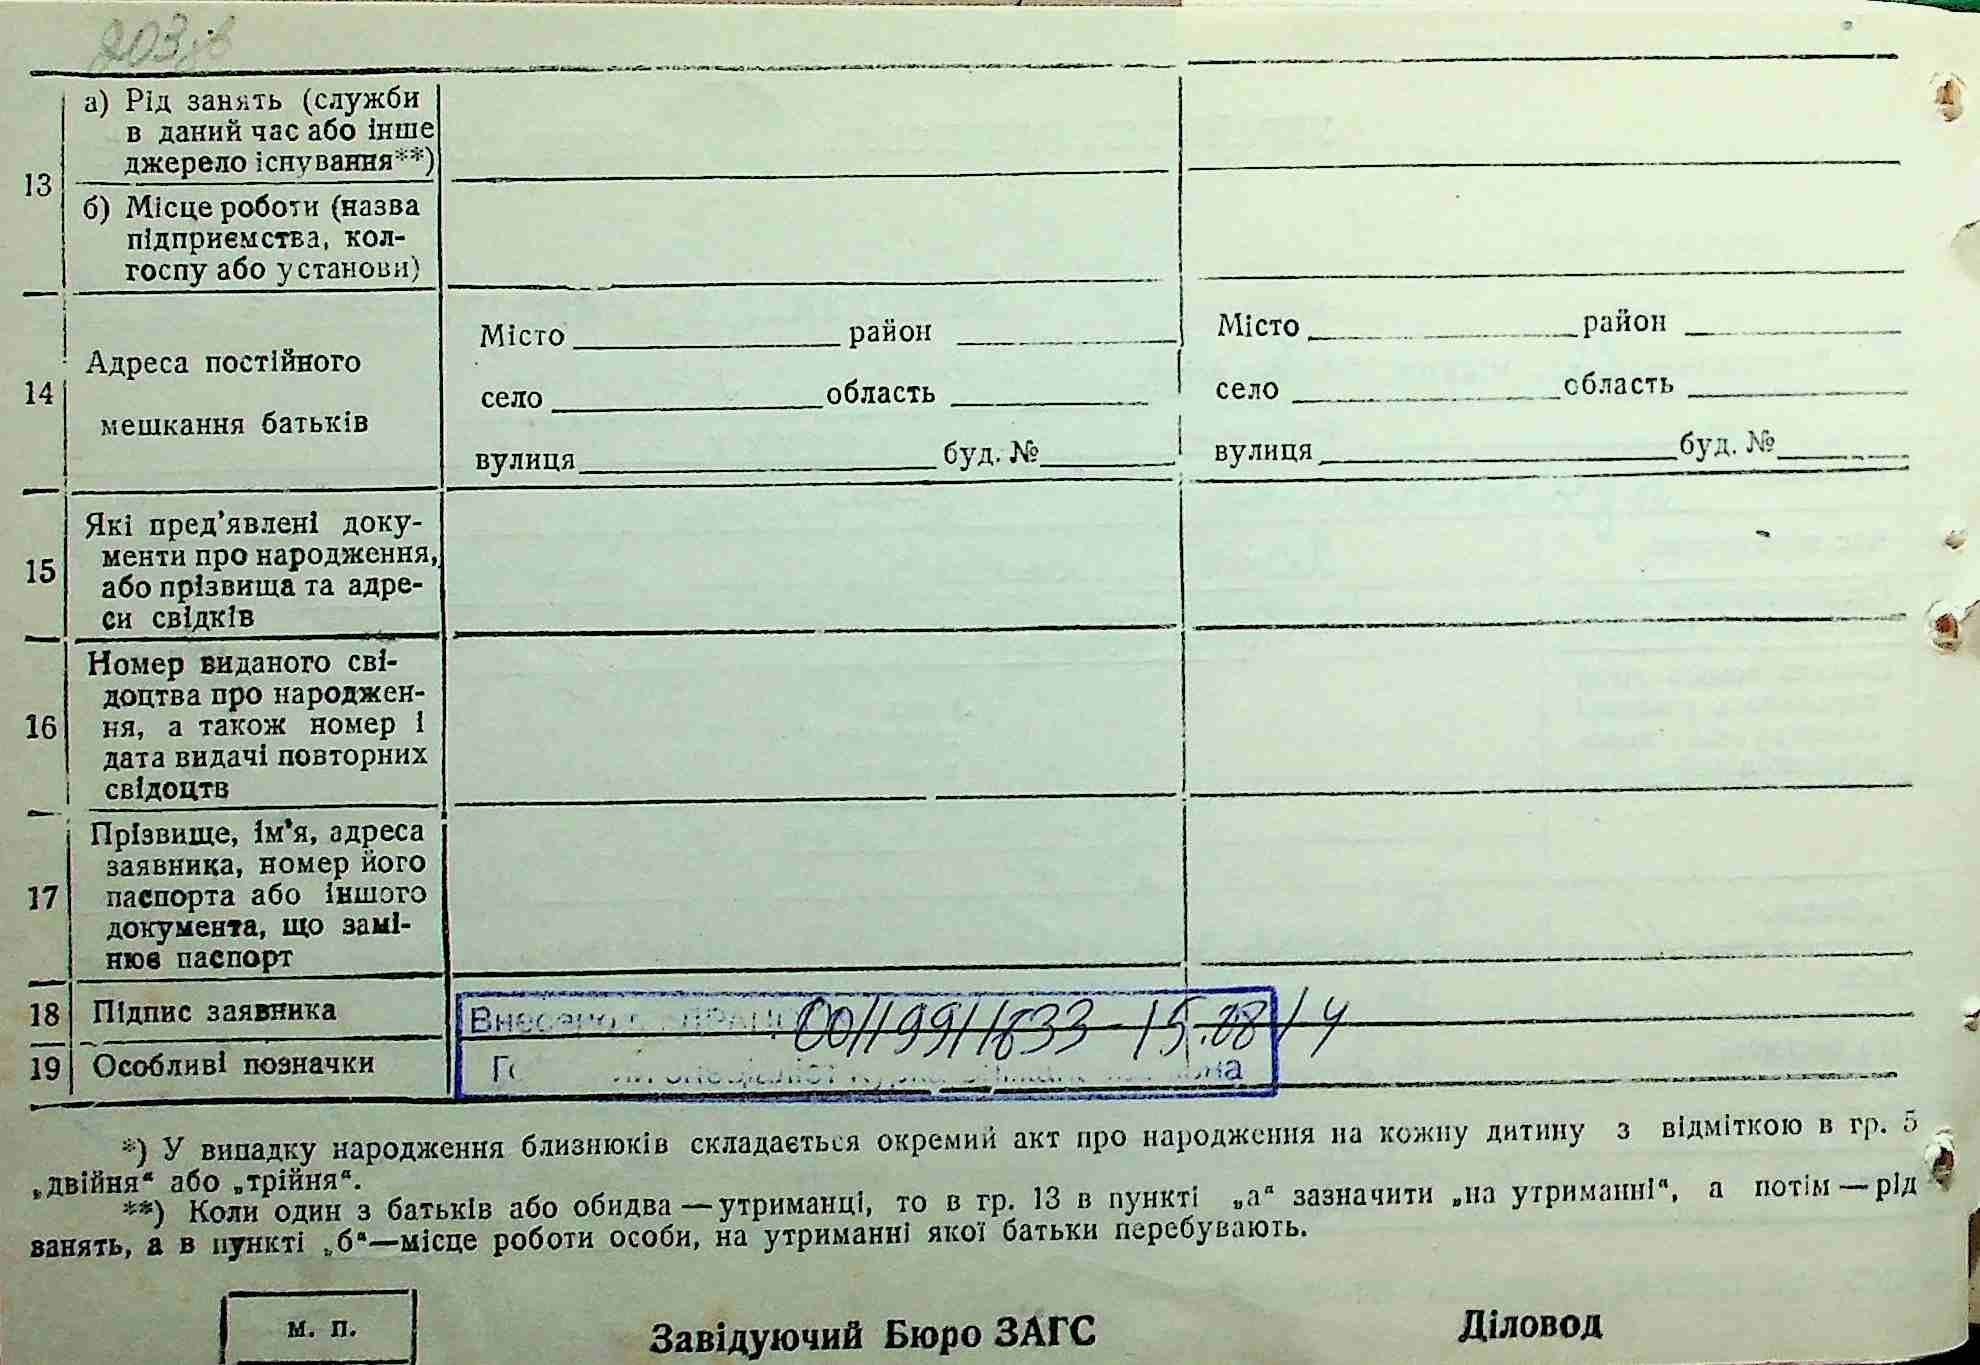 а) Рід занять (служби
в даний час або інше
джерело існування**)
13
б) Місце роботи (назва
підприємства, кол-
госпу або установи)
Місто район Місто район
Адреса постійного
14
село область село область
мешкання батьків
вулиця буд. № вулиця буд. №
Які пред'явлені доку-
менти про народження,
15
або прізвища та адре-
си свідків
Номер виданого сві-
доцтва про народжен-
16 ня, а також номер і
дата видачі повторних
свідоцтв
Прізвище, ім'я, адреса
заявника, номер його
17 паспорта або іншого
документа, що замі-
нює паспорт
18 Підпис заявника Внесено 00119911633 15.08.14
19 Особливі позначки спеціаліст
*) У випадку народження близнюків складається окремий акт про народження на кожну дитину з відміткою в гр. 5
„двійня“ або „трійня“.
**) Коли один з батьків або обидва — утриманці, то в гр. 13 в пункті „а“ зазначити „на утриманні“, а потім — рід
занять, а в пункті „б“—місце роботи особи, на утриманні якої батьки перебувають.
м. п.
Завідуючий Бюро ЗАГС Діловод